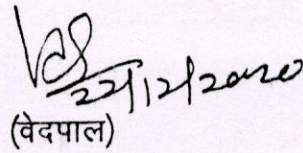 22/12/2020
(वेदपाल)